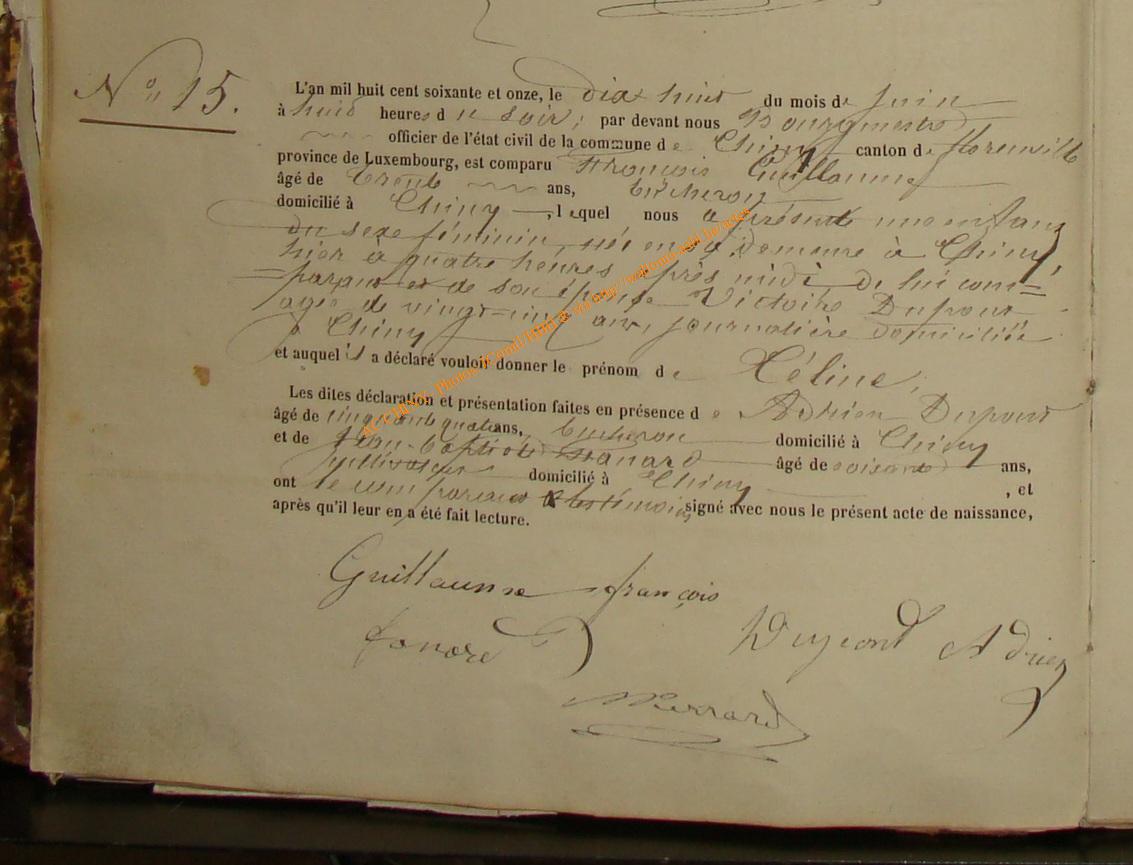 N° 15.
L'an mil huit cent soixante et onze, le dix huit du mois de Juin
à huit heures du soir, par devant nous Bourgmestre
officier de l'état civil de la commune de Chiny canton de florenville
province de Luxembourg, est comparu François Guillaume
âgé de trente ans, bucheron
domicilié à Chiny, lequel nous a présenté une enfant
du sexe féminin, née en sa demeure à Chiny,
hier à quatre heures après midi de lui com=
=parant et de son épouse Victoire Dupont
agée de vingt-un ans, journalière domiciliée
à Chiny
et auquel il a déclaré vouloir donner le prénom de Héline,
Les dites déclaration et présentation faites en présence de Adrien Dupont
âgé de cinquante quatre ans, bucheron domicilié à Chiny
et de Jean-Baptiste Fanard âgé de soixante ans,
cultivateur domicilié à Chiny, et
ont le comparant & les témoins signé avec nous le présent acte de naissance,
après qu'il leur en a été fait lecture.
Guillaume françois
Dupont Adrien